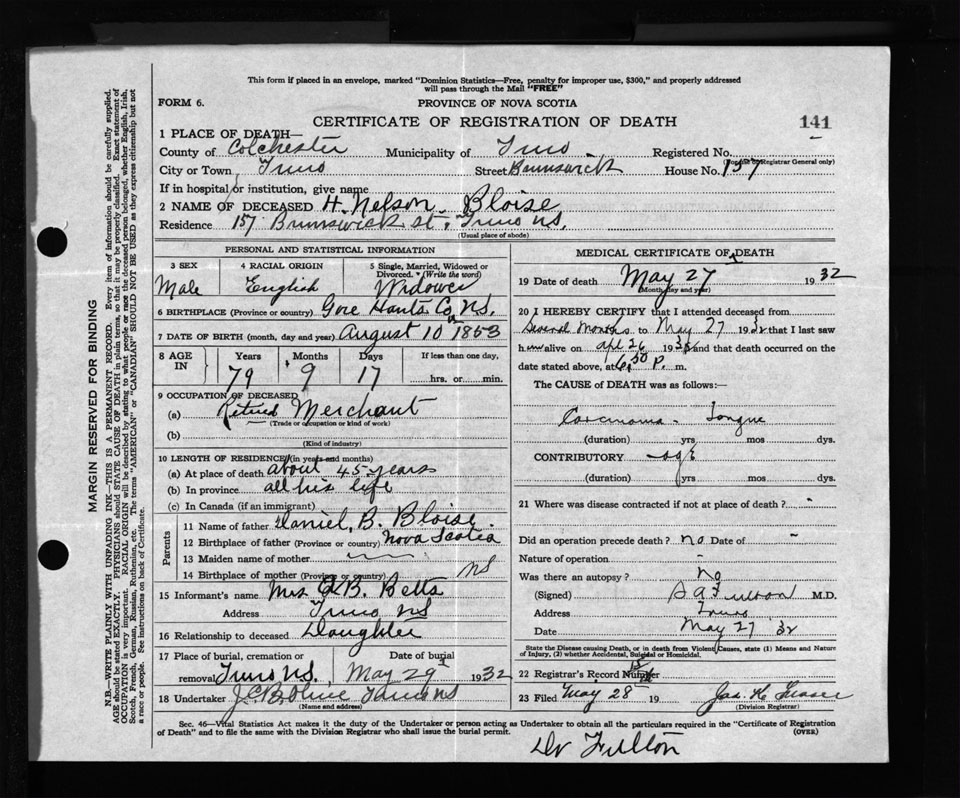 This form if placed in an envelope, marked "Dominion Statistics—Free, penalty for improper use, $300," and properly addressed
will pass through the Mail "FREE"
FORM 6.
PROVINCE OF NOVA SCOTIA
CERTIFICATE OF REGISTRATION OF DEATH
141
1 PLACE OF DEATH—
County of Colchester Municipality of Truro Registered No.
(For use of Registrar General only)
City or Town Truro Street Brunswick House No. 157
If in hospital or institution, give name
2 NAME OF DECEASED H. Nelson Bloise
Residence 157 Brunswick st. Truro NS.
(Usual place of abode)
PERSONAL AND STATISTICAL INFORMATION
3 SEX 4 RACIAL ORIGIN 5 Single, Married, Widowed or Divorced. (Write the word)
Male English Widower
6 BIRTHPLACE (Province or country) Gore Hants Co NS.
7 DATE OF BIRTH (month, day and year) August 10 1853
8 AGE IN Years Months Days If less than one day,
79 9 17 hrs. or min.
9 OCCUPATION OF DECEASED
(a) Retired Merchant
(Trade or occupation or kind of work)
(b)
(Kind of industry)
10 LENGTH OF RESIDENCE (in years and months)
(a) At place of death about 45 years
(b) In province all his life
(c) In Canada (if an immigrant)
Parents
11 Name of father Daniel B. Bloise
12 Birthplace of father (Province or country) Nova Scotia
13 Maiden name of mother
14 Birthplace of mother (Province or country) NS
15 Informant's name Mrs B. Betts
Address Truro NS
16 Relationship to deceased Daughter
17 Place of burial, cremation or removal Truro NS. Date of burial May 29 1932
18 Undertaker Truro NS
(Name and address)
MEDICAL CERTIFICATE OF DEATH
19 Date of death May 27 1932
(Month, day and year)
20 I HEREBY CERTIFY that I attended deceased from
Several Months to May 27 1932 that I last saw
him alive on apl 26 1932 and that death occurred on the
date stated above, at 6.30 P. m.
The CAUSE of DEATH was as follows:
Carcinoma - Tongue
(duration) yrs. mos. dys.
CONTRIBUTORY age
(duration) yrs. mos. dys.
21 Where was disease contracted if not at place of death? -
Did an operation precede death? no Date of -
Nature of operation -
Was there an autopsy? no
(Signed) S A Fulton M.D.
Address Truro
Date May 27 32
State the Disease causing Death, or in death from Violent Causes, state (1) Means and Nature of Injury, (2) whether Accidental, Suicidal or Homicidal.
22 Registrar's Record Number
23 Filed May 28 19 Jas. H. Fraser
(Division Registrar)
Sec. 46—Vital Statistics Act makes it the duty of the Undertaker or person acting as Undertaker to obtain all the particulars required in the "Certificate of Registration
of Death" and to file the same with the Division Registrar who shall issue the burial permit.
(OVER)
Dr Fulton
MARGIN RESERVED FOR BINDING
N.B.—WRITE PLAINLY WITH UNFADING INK—THIS IS A PERMANENT RECORD. Every item of information should be carefully supplied.
AGE should be stated EXACTLY. PHYSICIANS should STATE CAUSE OF DEATH in plain terms, so that it may be properly classified. Exact statement of
OCCUPATION is very important. RACIAL ORIGIN will be described by stating to what people or race the deceased person belonged, whether English, Irish,
Scotch, French, German, Russian, Ruthenian, etc. The terms "AMERICAN" or "CANADIAN" SHOULD NOT BE USED as they express citizenship but not
a race or people. See instructions on back of Certificate.